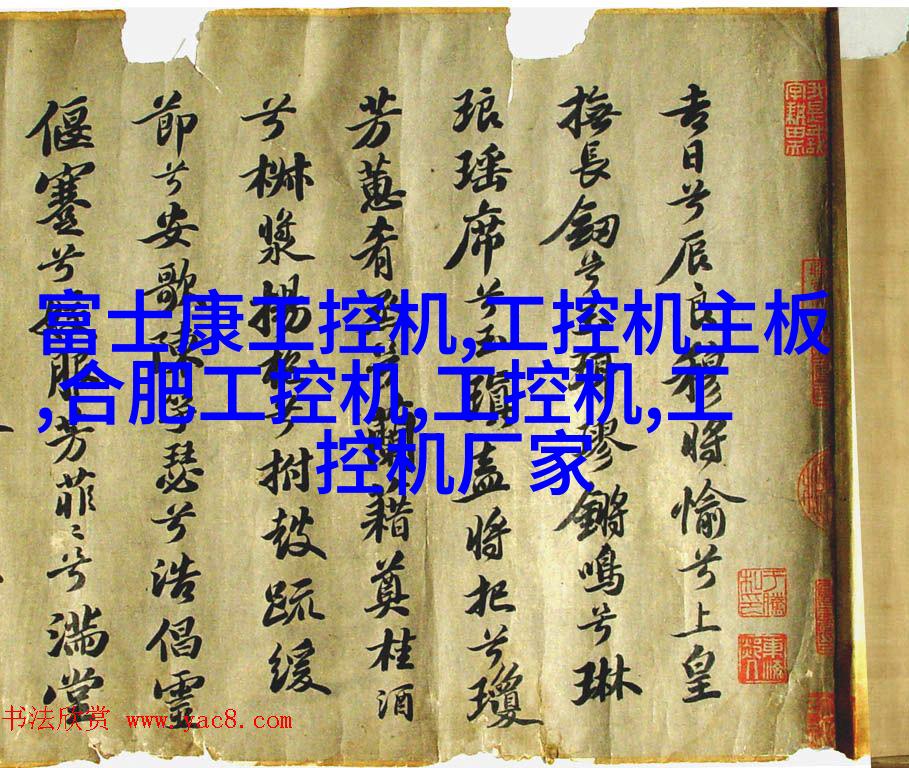 吉日兮辰良穆將愉兮上皇
撫長劒兮玉珥璆鏘鳴兮琳
琅瑶席兮玉瑱盖將把兮瓊
芳蕙肴烝兮蘭藉奠桂酒
兮椒漿揚枹兮拊鼓疏緩
節兮安歌陳竽瑟兮浩倡靈
偃蹇兮姣服芳菲〻兮滿堂
富士康工控机,工控机主板
,合肥工控机,工控机,工
控机厂家
书法欣赏 www.yac8.com